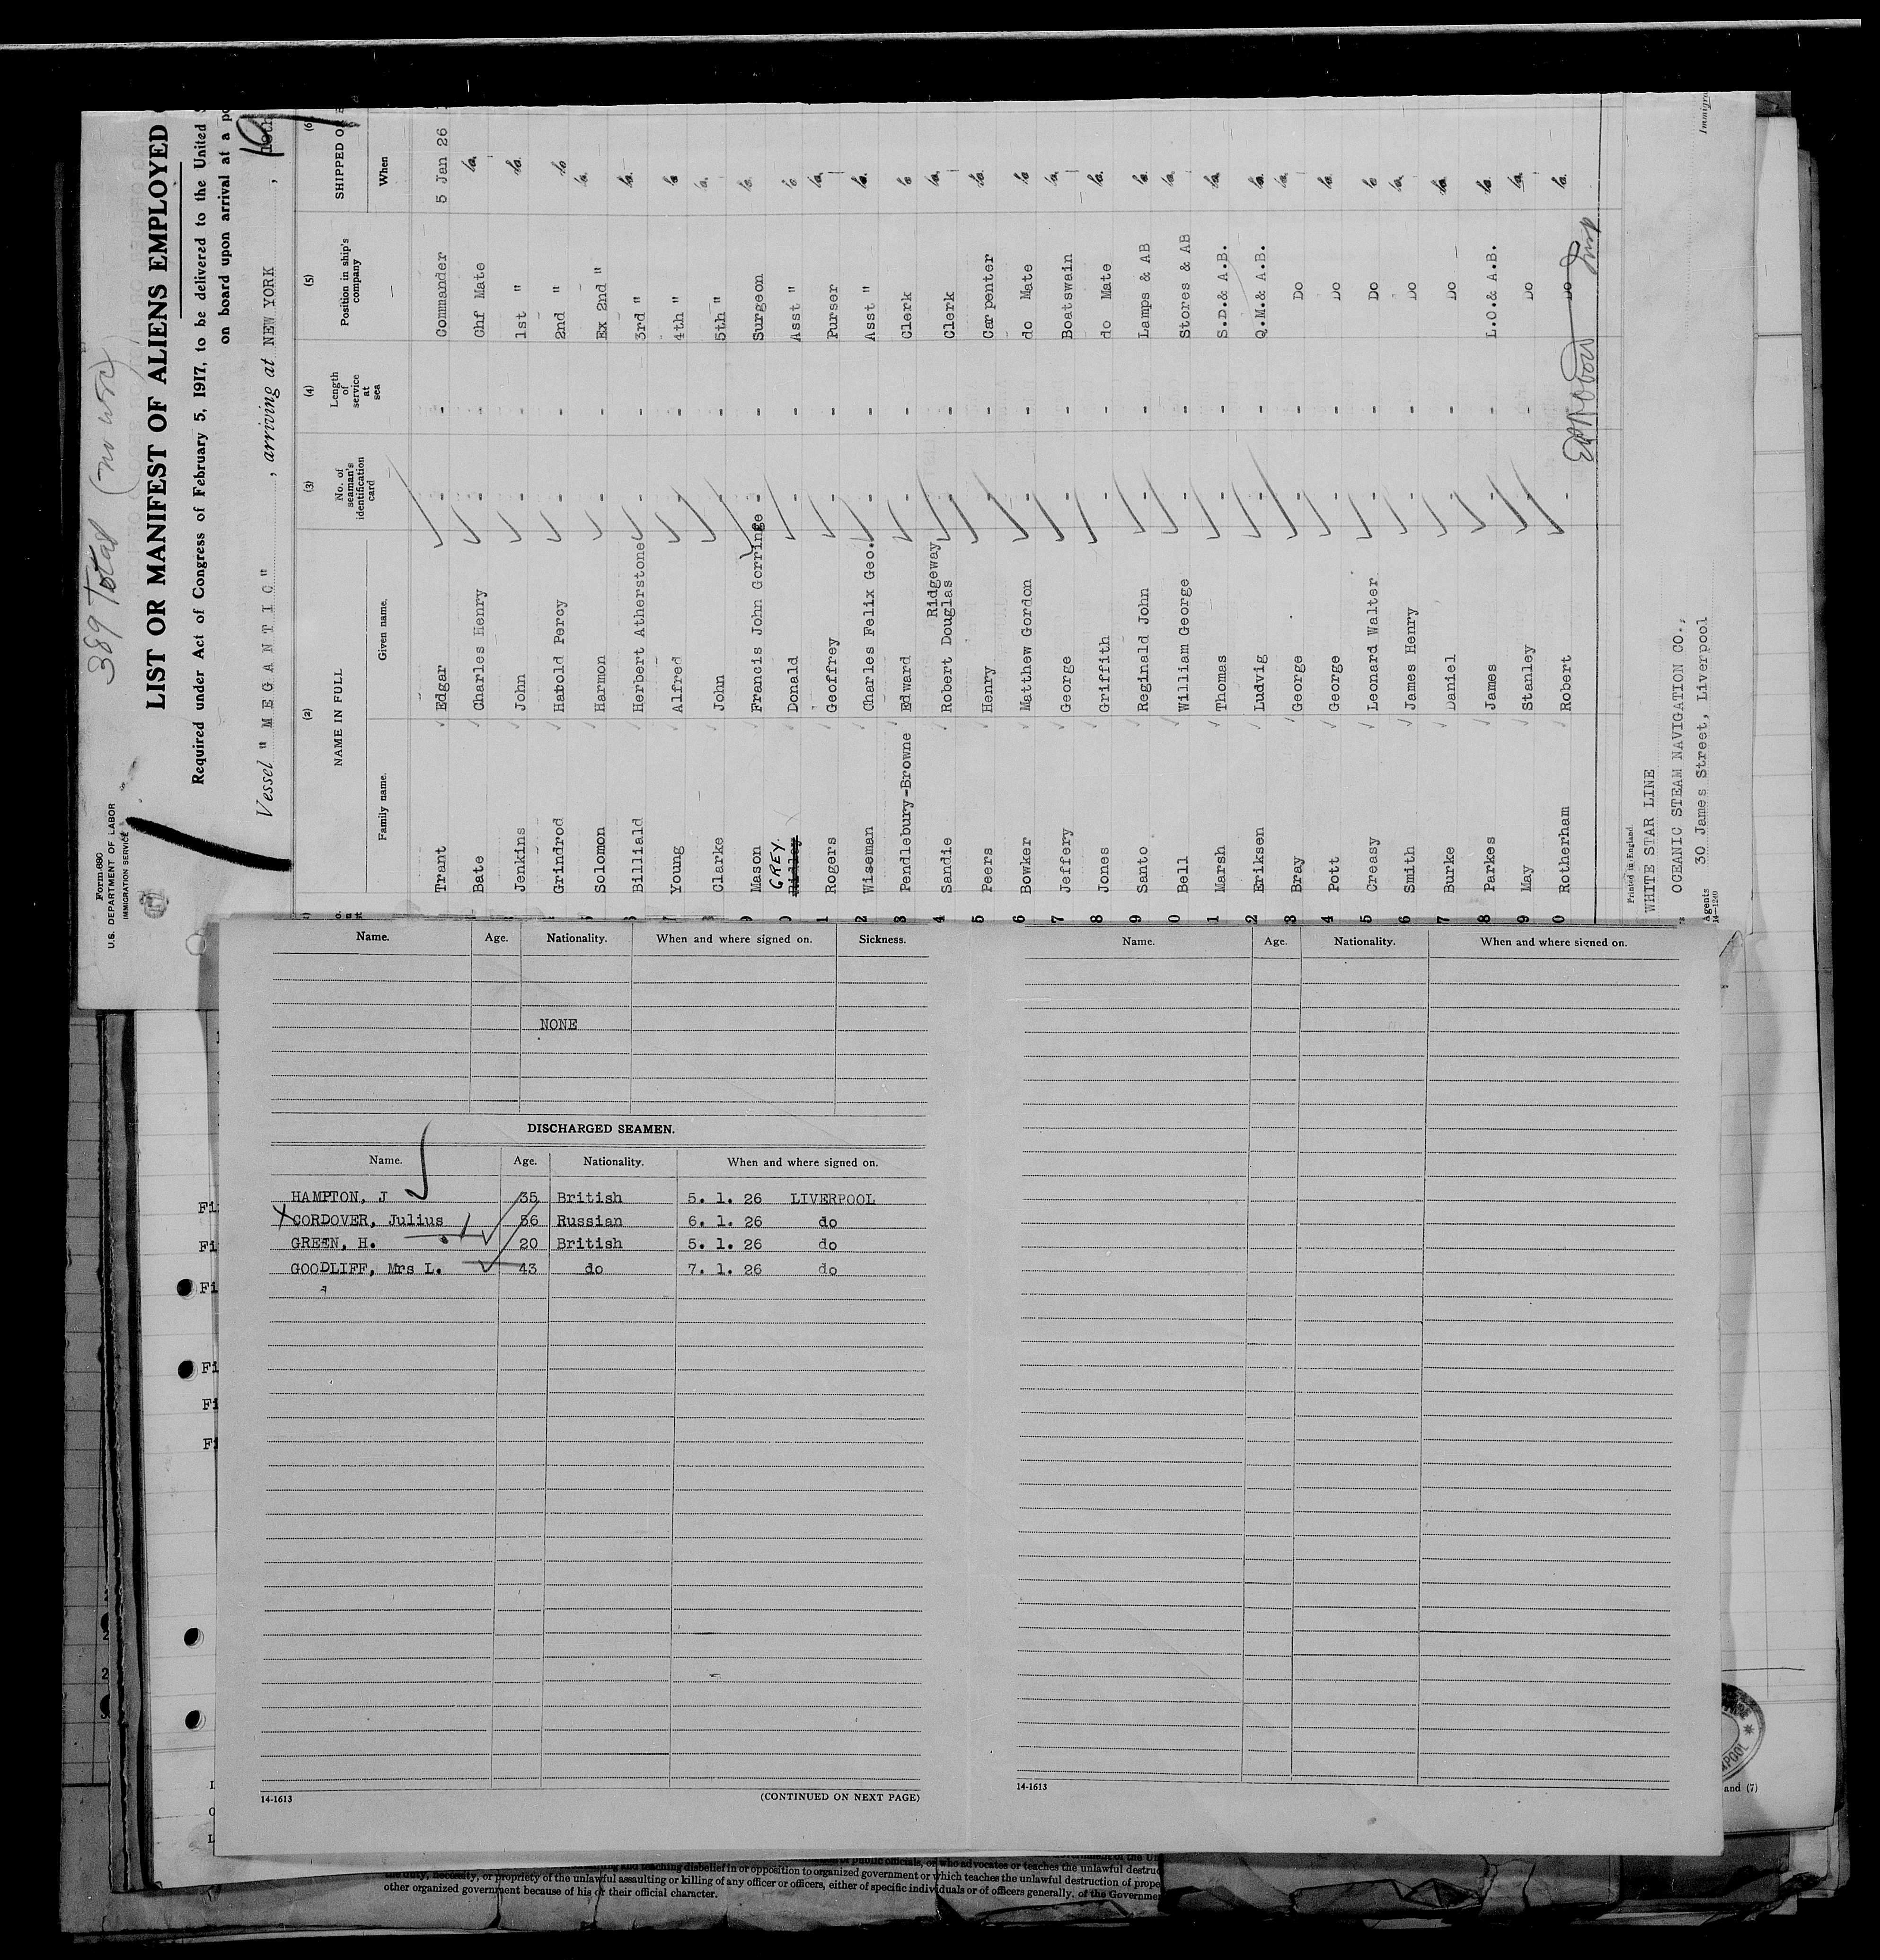 389 Total
Form 680
U.S. DEPARTMENT OF LABOR
IMMIGRATION SERVICE
LIST OR MANIFEST OF ALIENS EMPLOYED
Required under Act of Congress of February 5, 1917, to be delivered to the United
on board upon arrival at a
Vessel "MEGANTIC", arriving at NEW YORK,
(2) (3) (4) (5) (6)
NAME IN FULL No. of seaman's identification card Length of service at sea Position in ship's company SHIPPED
Family name. Given name. When
Trant Edgar - - Commander 5 Jan 26
Bate Charles Henry - - Chf Mate do
Jenkins John - - 1st " do
Grindrod Harold Percy - - 2nd " do
5 Solomon Harmon - - Ex 2nd " do
6 Billiald Herbert Atherstone - - 3rd " do
7 Young Alfred - - 4th " do
8 Clarke John - - 5th " do
9 Mason Francis John Gorringe - - Surgeon do
0 GREY. Donald - - Asst " do
1 Rogers Geoffrey - - Purser do
2 Wiseman Charles Felix Geo. - - Asst " do
3 Pendlebury-Browne Edward - - Clerk do
4 Sandie Robert Douglas Ridgeway - - Clerk do
5 Peers Henry - - Carpenter do
6 Bowker Matthew Gordon - - do Mate do
7 Jeffery George - - Boatswain do
8 Jones Griffith - - do Mate do
9 Santo Reginald John - - Lamps & AB do
0 Bell William George - - Stores & AB do
1 Marsh Thomas - - S.D.& A.B. do
2 Eriksen Ludvig - - Q.M.& A.B. do
3 Bray George - - Do do
4 Pott George - - Do do
5 Creasy Leonard Walter - - Do do
6 Smith James Henry - - Do do
7 Burke Daniel - - Do do
8 Parkes James - - L.O.& A.B. do
9 May Stanley - - Do do
0 Rotherham Robert - - Do do
Printed in England.
WHITE STAR LINE
OCEANIC STEAM NAVIGATION CO.,
Agents 30 James Street, Liverpool
14-1240
Name. Age. Nationality. When and where signed on. Sickness.
NONE
DISCHARGED SEAMEN.
Name. Age. Nationality. When and where signed on.
HAMPTON, J 35 British 5. 1. 26 LIVERPOOL
X CORDOVER, Julius 56 Russian 6. 1. 26 do
GREEN, H. 20 British 5. 1. 26 do
GOODLIFF, Mrs L. 43 do 7. 1. 26 do
14-1613 (CONTINUED ON NEXT PAGE)
Name. Age. Nationality. When and where signed on.
14-1613
and (7)
and teaching disbelief in or opposition to organized government or which teaches the unlawful destruction of prope
necessity, or propriety of the unlawful assaulting or killing of any officer or officers, either of specific individuals or of officers generally, of the Governme
other organized government because of his or their official character.